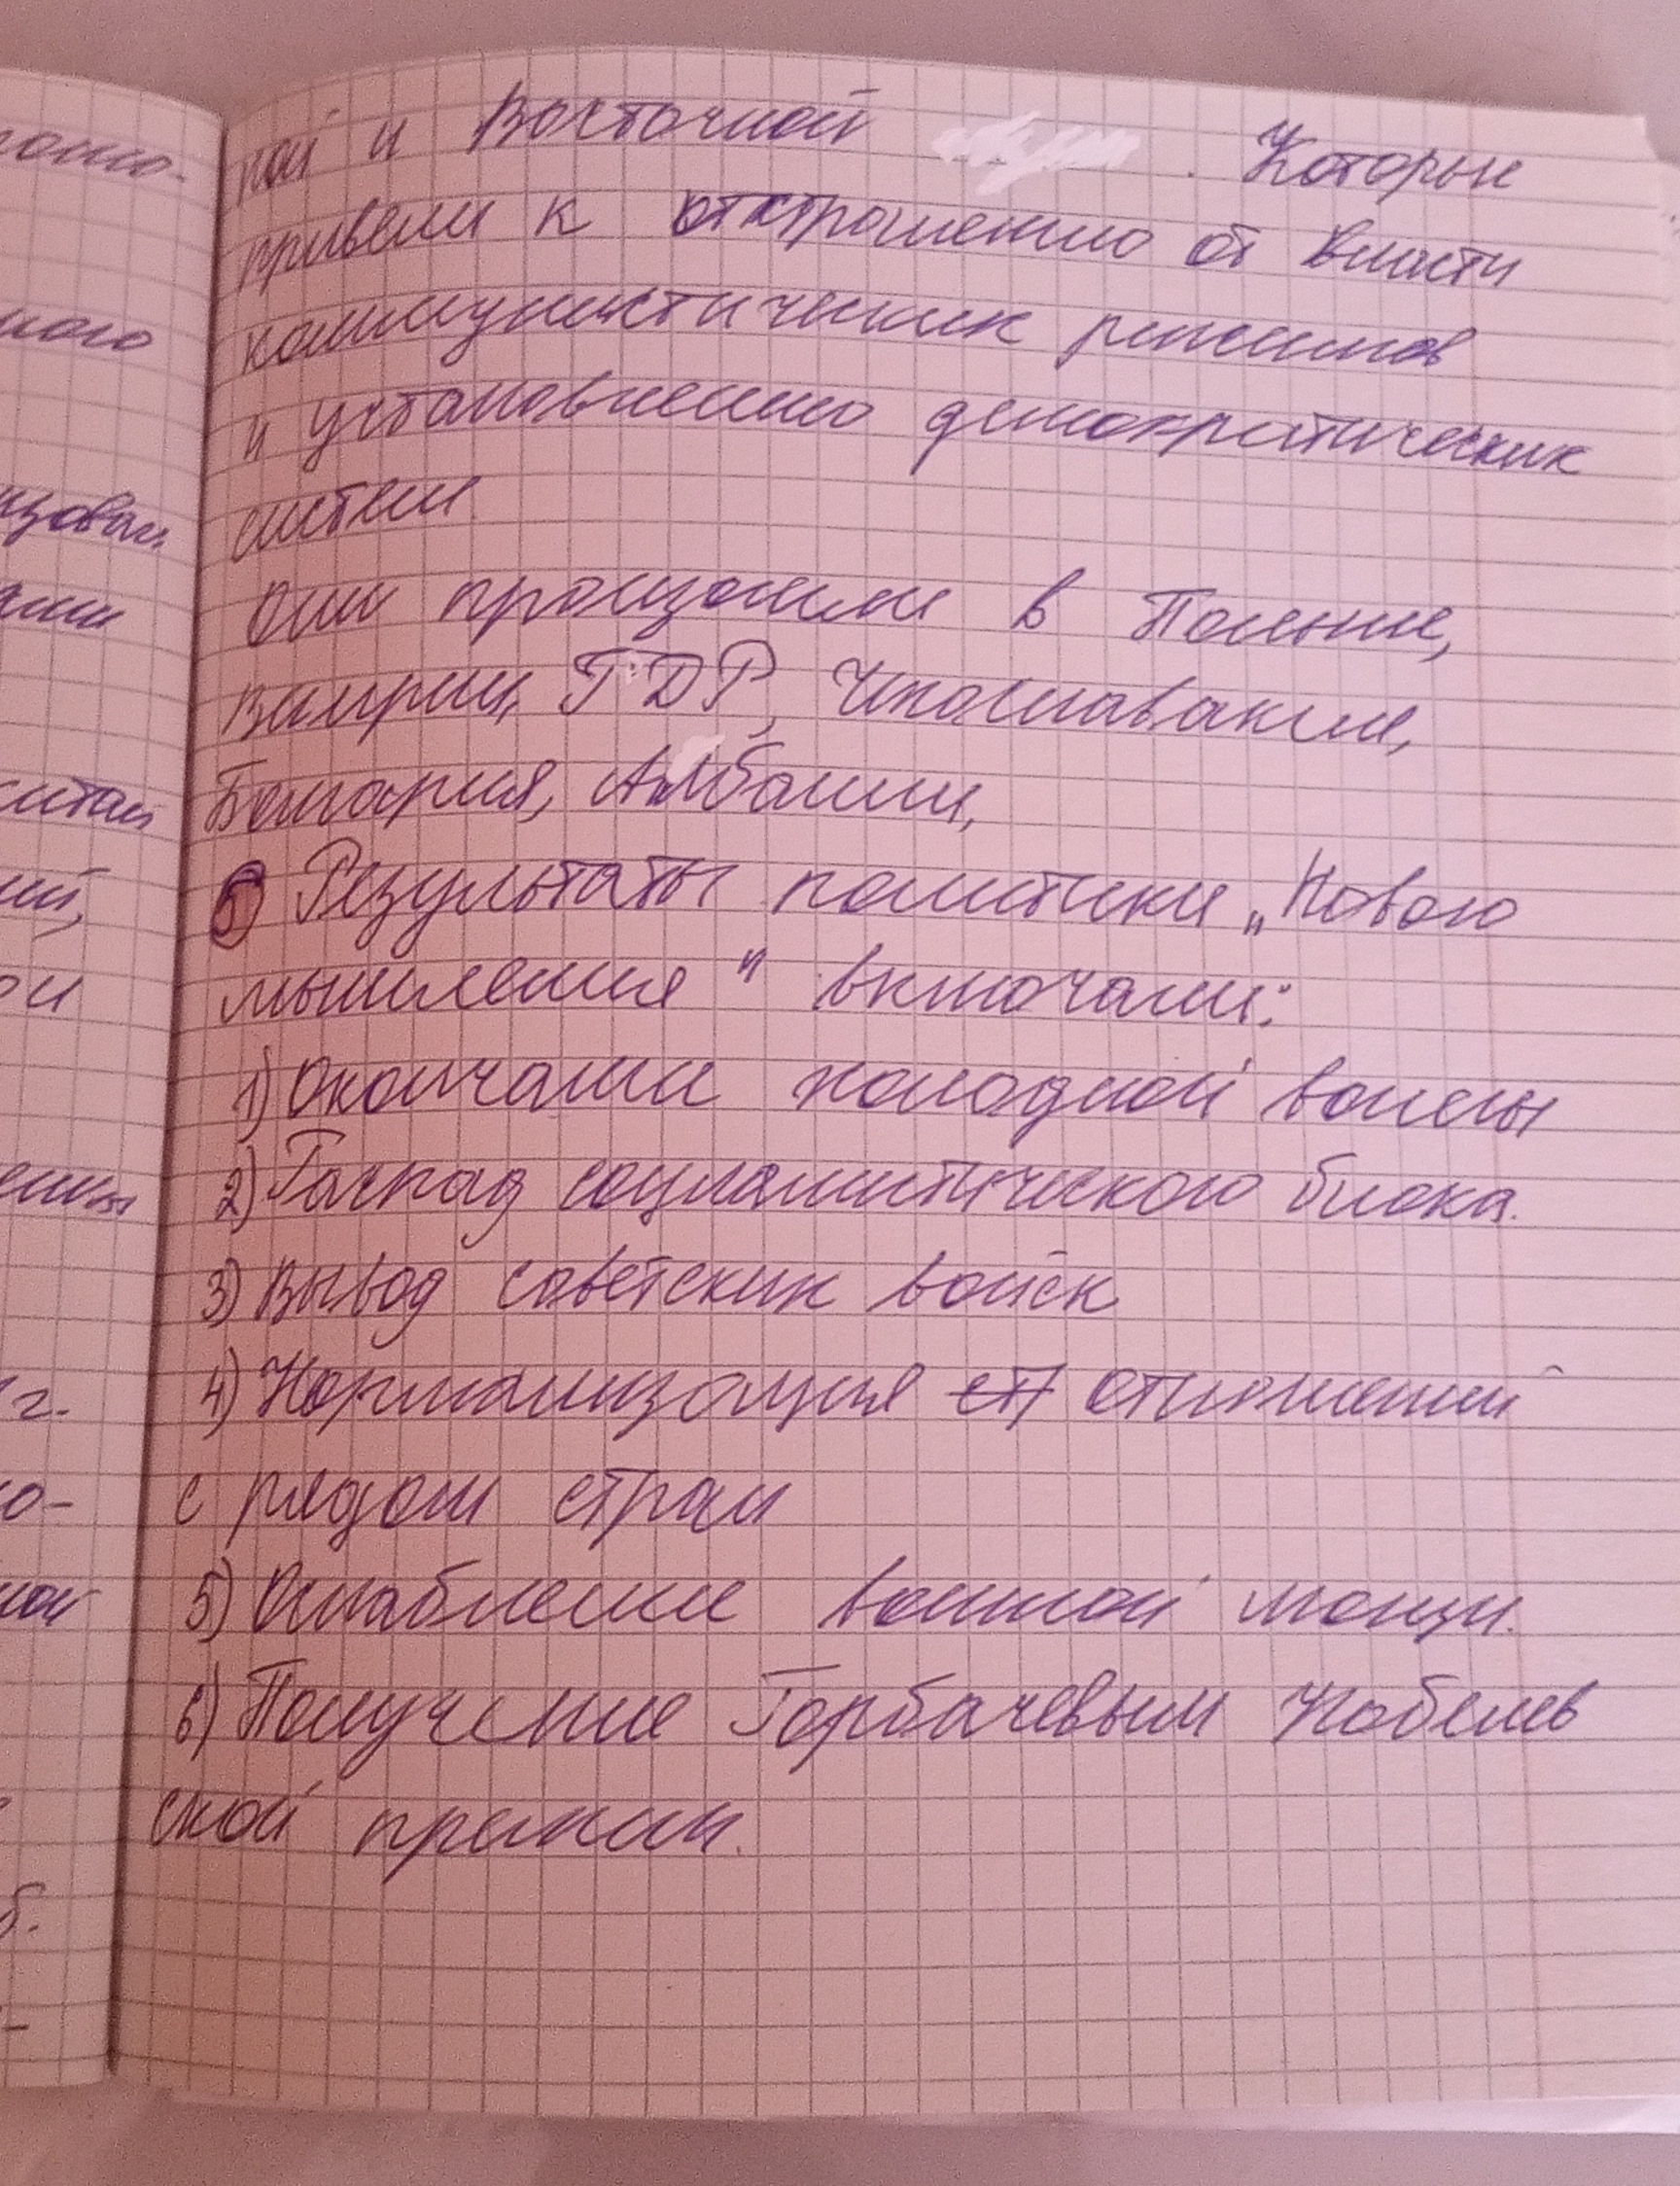 ной и Восточной . Которые
привели к отстронению от власти
коммунистических режимов
и установлению демократических
систем.
Они произошли в Польше,
Вынгрии, ГДР, Чехославакии,
Болгария, Албании,
5 Результаты политики „Нового
мышления" включали:
1) Окончание холодной войны
2) Распад социалистического блока.
3) Вывод советских войск
4) Нормализация отношений
с рядом стран
5) Ослабление военной мощи.
6) Получение Горбачевым Нобелев
ской премии.